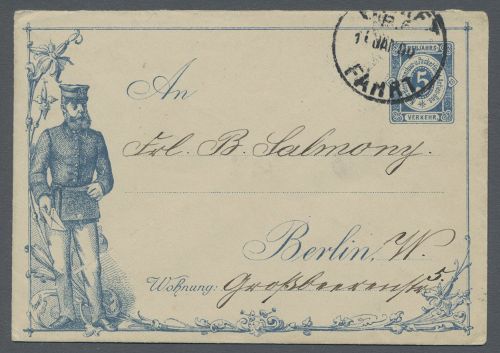 11 JAN 00
FAHRT.
NEUJAHRS
5
VERKEHR
An
Frl. B. Salmony.
Berlin, W.
5
Wohnung: Großbeerenstr.